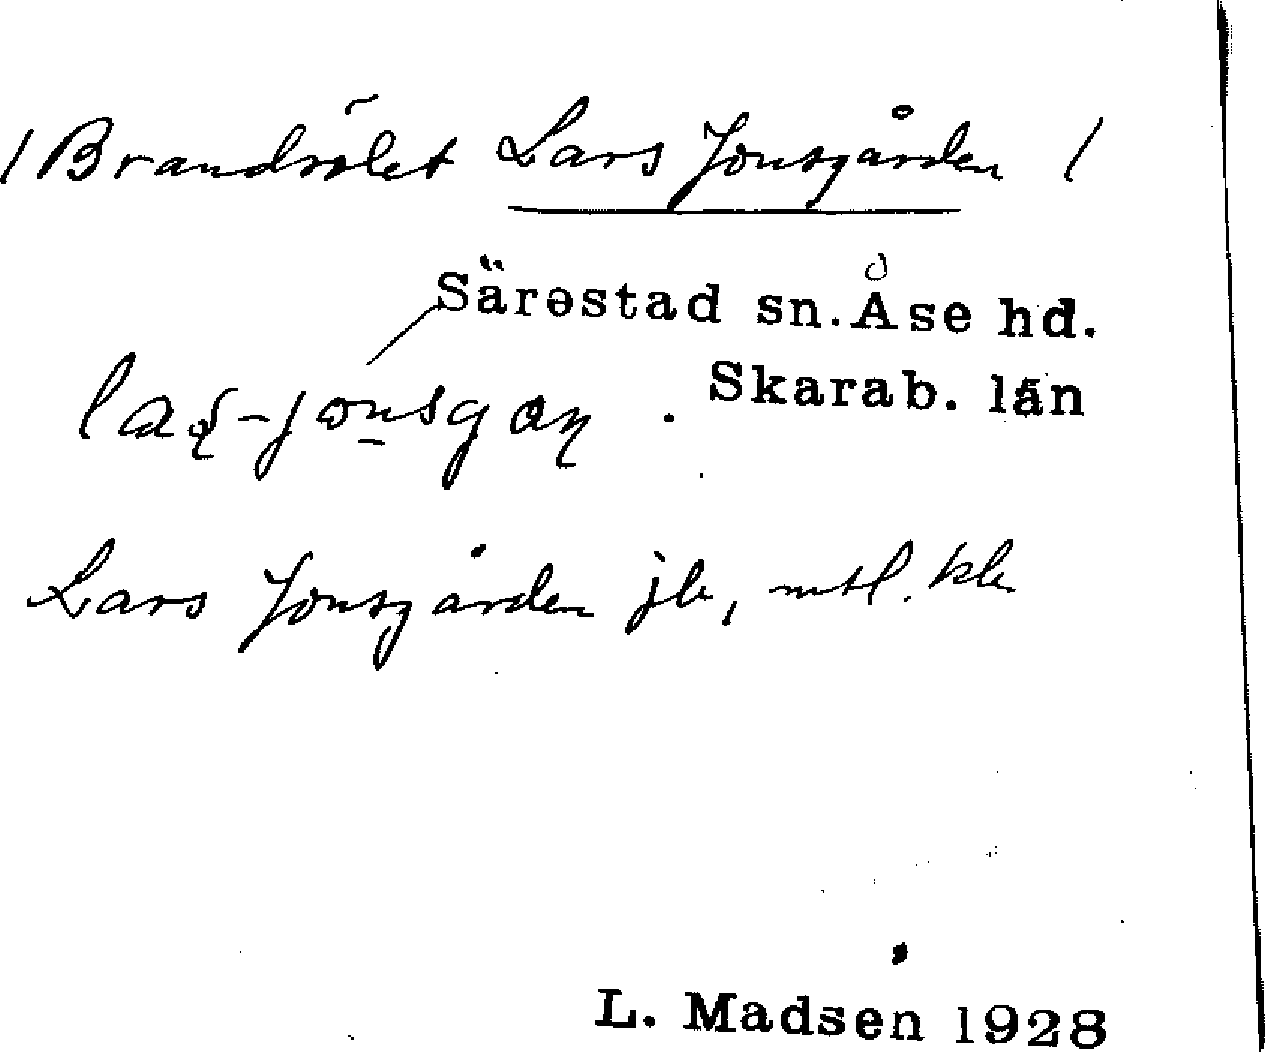 / Brandsölet Lars Jonsgården /
Särestad sn. Åse hd.
Skarab. län
Lars Jonsgården jb, mtl. kb
L. Madsen 1928